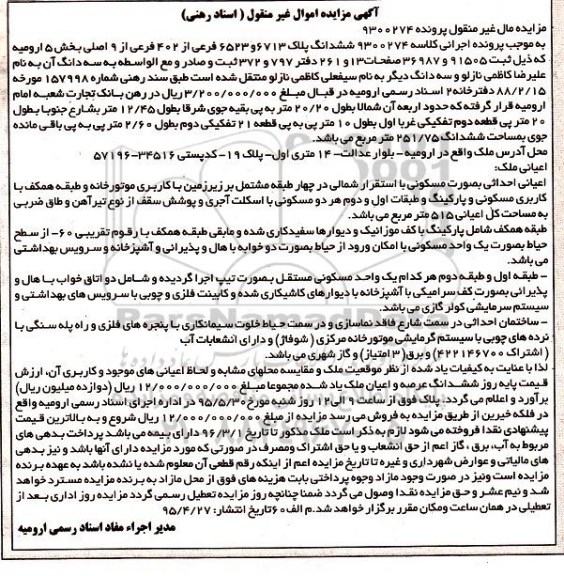 آگهی مزایده اموال غیر منقول ( اسناد رهنی)
مزایده مال غیر منقول پرونده ۹۳۰۰۲۷۴
به موجب پرونده اجرائی کلاسه ۹۳۰۰۲۷۴ ششدانگ پلاک ۶۷۱۳و۶۵۲۳ فرعی از ۴۰۲ فرعی از ۹ اصلی بخش ۵ ارومیه
که ذیل ثبت ۹۱۵۰۵ و ۳۶۹۸۷ صفحات ۱۳و ۲۶۱ دفتر ۷۹۷ و ۳۷۲ ثبت و صادر و مع الواسطه به سه دانگ آن به نام
علیرضا کاظمی نازلو و سه دانگ دیگر به نام سیفعلی کاظمی نازلو منتقل شده است طبق سند رهنی شماره ۱۵۷۹۹۸ مورخه
۸۸/۲/۱۵ دفترخانه ۲ اسناد رسمی ارومیه در قبال مبلغ ۳/۲۰۰/۰۰۰/۰۰۰ ریال در رهن بانک تجارت شعبه امام
ارومیه قرار گرفته که حدود اربعه آن شمالا بطول ۲۰/۲۰ متر به پی بقیه جوی شرقا بطول ۱۲/۴۵ متر بشارع جنوبا بطول
۲۰ متر پی قطعه دوم تفکیکی غربا اول بطول ۱۰ متر پی به پی قطعه ۲۱ تفکیکی دوم بطول ۲/۶۰ متر پی به پی باقی مانده
جوی بمساحت ششدانگ ۲۵۱/۷۵ متر مربع می باشد.
محل آدرس ملک واقع در ارومیه- بلوار عدالت- ۱۴ متری اول- پلاک ۱۹- کدپستی ۳۴۵۱۶-۵۷۱۹۶
اعیانی ملک:
اعیانی احداثی بصورت مسکونی با استقرار شمالی در چهار طبقه مشتمل بر زیرزمین با کاربری موتورخانه و طبقه همکف با
کاربری مسکونی و پارکینگ و طبقات اول و دوم هر دو مسکونی با اسکلت آجری و پوشش سقف از نوع تیرآهن و طاق ضربی
به مساحت کل اعیانی ۵۱۵ متر مربع می باشد.
طبقه همکف شامل پارکینگ با کف موزائیک و دیوارها سفیدکاری شده و مابقی طبقه همکف با رقوم تقریبی ۶۰- از سطح
حیاط بصورت یک واحد مسکونی با امکان ورود از حیاط بصورت دو خوابه با هال و پذیرائی و آشپزخانه و سرویس بهداشتی
می باشد.
- طبقه اول و طبقه دوم هر کدام یک واحد مسکونی مستقل بصورت تیپ اجرا گردیده و شامل دو اتاق خواب با هال و
پذیرائی بصورت کف سرامیکی با آشپزخانه با دیوارهای کاشیکاری شده و کابینت فلزی و چوبی با سرویس های بهداشتی و
سیستم سرمایشی کولر گازی می باشد.
- ساختمان احداثی در سمت شارع فاقد نماسازی و در سمت حیاط خلوت سیمانکاری با پنجره های فلزی و راه پله سنگی با
نرده های چوبی با سیستم گرمایشی موتورخانه مرکزی ( شوفاژ) و دارای انشعابات آب
( اشتراک ۴۲۲۱۴۶۷۰۰) و برق( ۳ امتیاز) و گاز شهری می باشد.
لذا با عنایت به کیفیات یاد شده از نظر موقعیت ملک و مقایسه محلهای مشابه و لحاظ اعیانی های موجود و کاربری آن، ارزش
قیمت پایه روز ششدانگ عرصه و اعیان ملک یاد شده مجموعا مبلغ ۱۲/۰۰۰/۰۰۰/۰۰۰ ریال (دوازده میلیون ریال)
برآورد و اعلام می گردد. پلاک فوق از ساعت ۹ الی ۱۲ روز شنبه مورخ ۹۵/۵/۳۰ در اداره اجرای اسناد رسمی ارومیه واقع
در فلکه خیرین از طریق مزایده به فروش می رسد مزایده از مبلغ ۱۲/۰۰۰/۰۰۰/۰۰۰ ریال شروع و به بالاترین قیمت
پیشنهادی نقدا فروخته می شود لازم به ذکر است ملک مذکور تا تاریخ ۹۶/۳/۱ دارای بیمه می باشد پرداخت بدهی های
مربوط به آب، برق ، گاز اعم از حق انشعاب و یا حق اشتراک ومصرف در صورتی که مورد مزایده دارای آنها باشد و نیز بدهی
های مالیاتی و عوارض شهرداری و غیره تا تاریخ مزایده اعم از اینکه رقم قطعی آن معلوم شده یا نشده باشد به عهده برنده
مزایده است ونیز در صورت وجود مازاد وجوه پرداختی بابت هزینه های فوق از محل مازاد به برنده مزایده مسترد خواهد
شد و نیم عشر و حق مزایده نقدا وصول می گردد ضمنا چنانچه روز مزایده تعطیل رسمی گردد مزایده روز اداری بعد از
تعطیلی در همان ساعت ومکان مقرر برگزار خواهد شد.م الف ۶۰ تاریخ انتشار: ۹۵/۴/۲۷
مدیر اجراء مفاد اسناد رسمی ارومیه